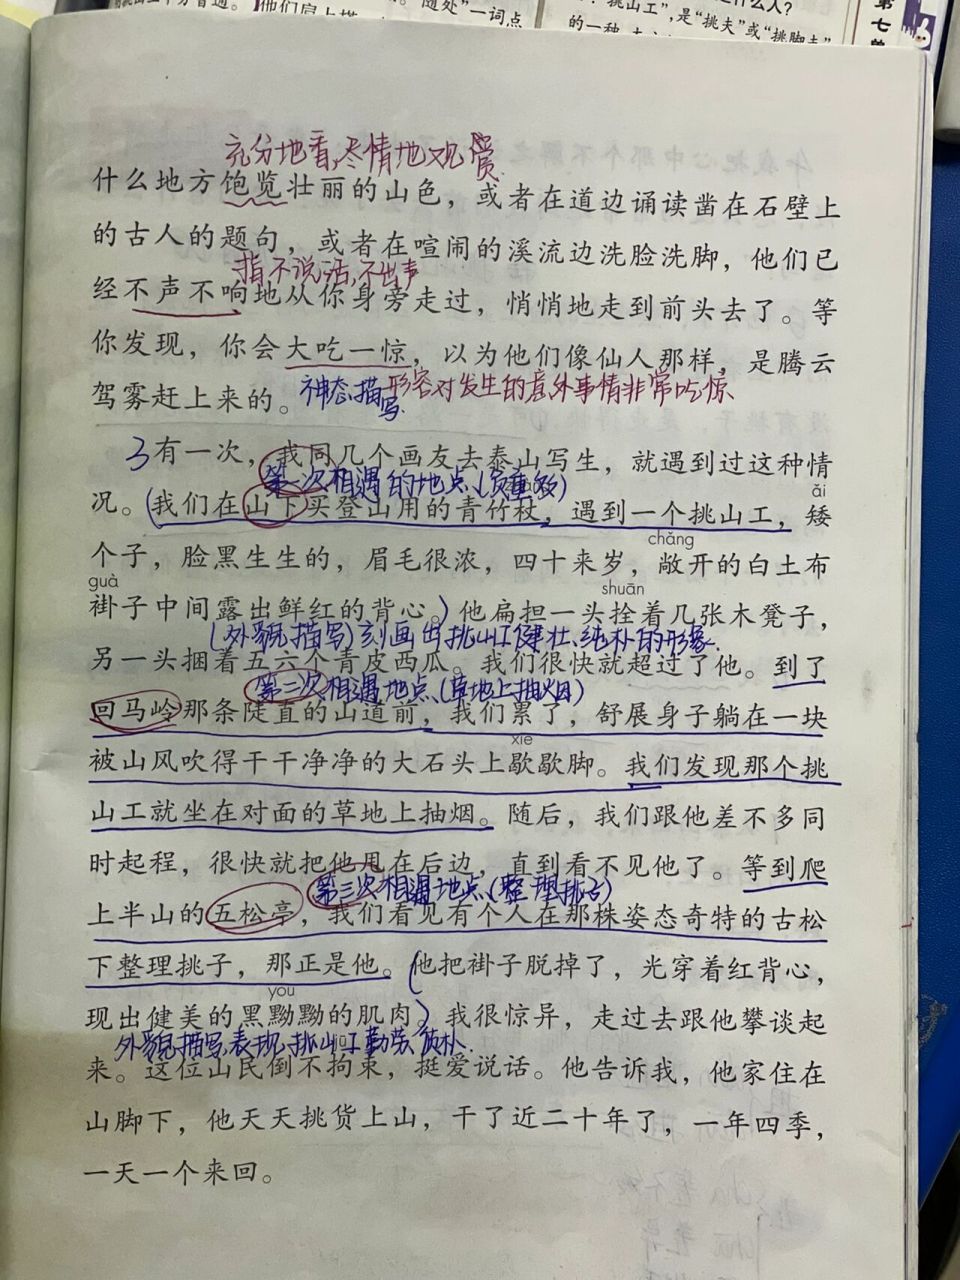 挑山工”，是“挑夫”或“挑脚夫”
“随处”一词点
第七单
充分地看，尽情地观赏
什么地方饱览壮丽的山色，或者在道边诵读凿在石壁上
的古人的题句，或者在喧闹的溪流边洗脸洗脚，他们已
指不说话，不出声
经不声不响地从你身旁走过，悄悄地走到前头去了。等
你发现，你会大吃一惊，以为他们像仙人那样，是腾云
驾雾赶上来的。神态描写 形容对发生的意外事情非常吃惊
3有一次，我同几个画友去泰山写生，就遇到过这种情
第一次相遇的地点（负重致）
ǎi
况。（我们在山下买登山用的青竹杖，遇到一个挑山工，矮
chǎng
个子，脸黑生生的，眉毛很浓，四十来岁，敞开的白土布
guà shuān
褂子中间露出鲜红的背心。）他扁担一头拴着几张木凳子，
（外貌描写）刻画出挑山工健壮、纯朴的形象
另一头捆着五六个青皮西瓜。我们很快就超过了他。到了
第二次相遇地点（草地上抽烟）
回马岭那条陡直的山道前，我们累了，舒展身子躺在一块
xiē
被山风吹得干干净净的大石头上歇歇脚。我们发现那个挑
山工就坐在对面的草地上抽烟。随后，我们跟他差不多同
时起程，很快就把他甩在后边，直到看不见他了。等到爬
第三次相遇地点（整理挑子）
上半山的五松亭，我们看见有个人在那株姿态奇特的古松
下整理挑子，那正是他。（他把褂子脱掉了，光穿着红背心，
yǒu
现出健美的黑黝黝的肌肉）。我很惊异，走过去跟他攀谈起
外貌描写，表现挑山工勤劳、质朴.
来。这位山民倒不拘束，挺爱说话。他告诉我，他家住在
山脚下，他天天挑货上山，干了近二十年了，一年四季，
一天一个来回。